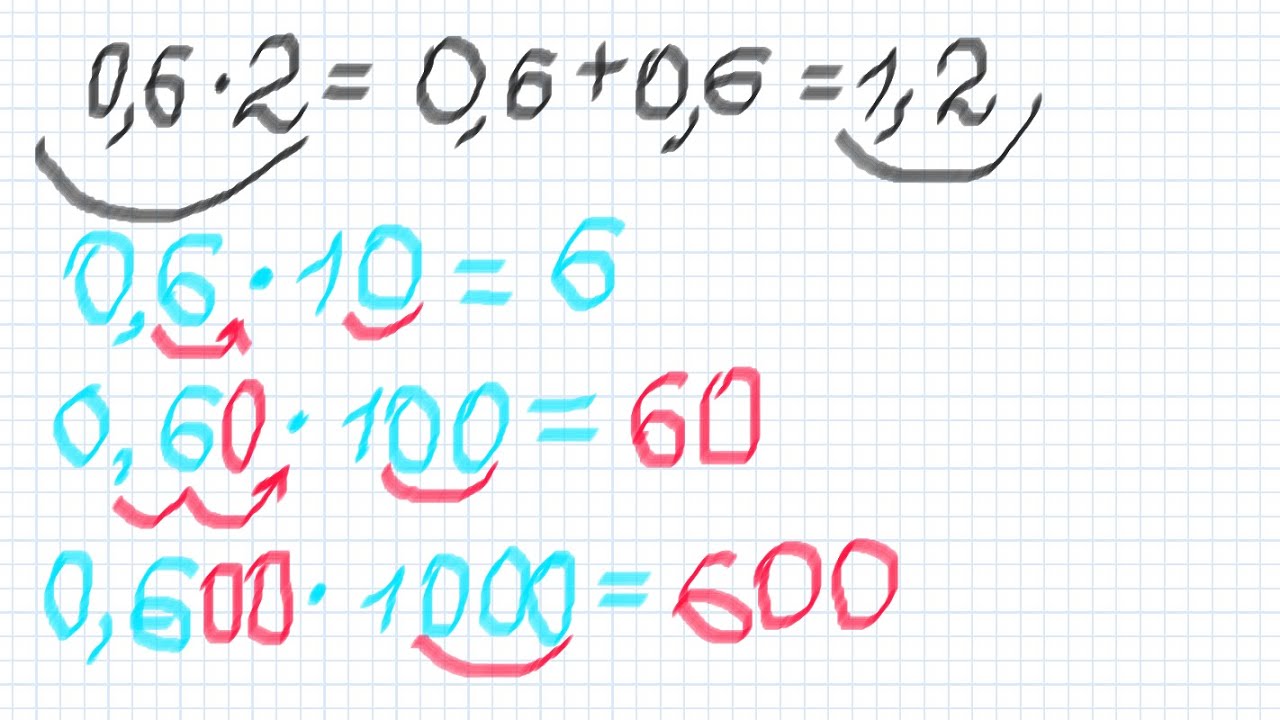 0,6·2=0,6+0,6=1,2
0,6·10=6
0,60·100=60
0,600·1000=600